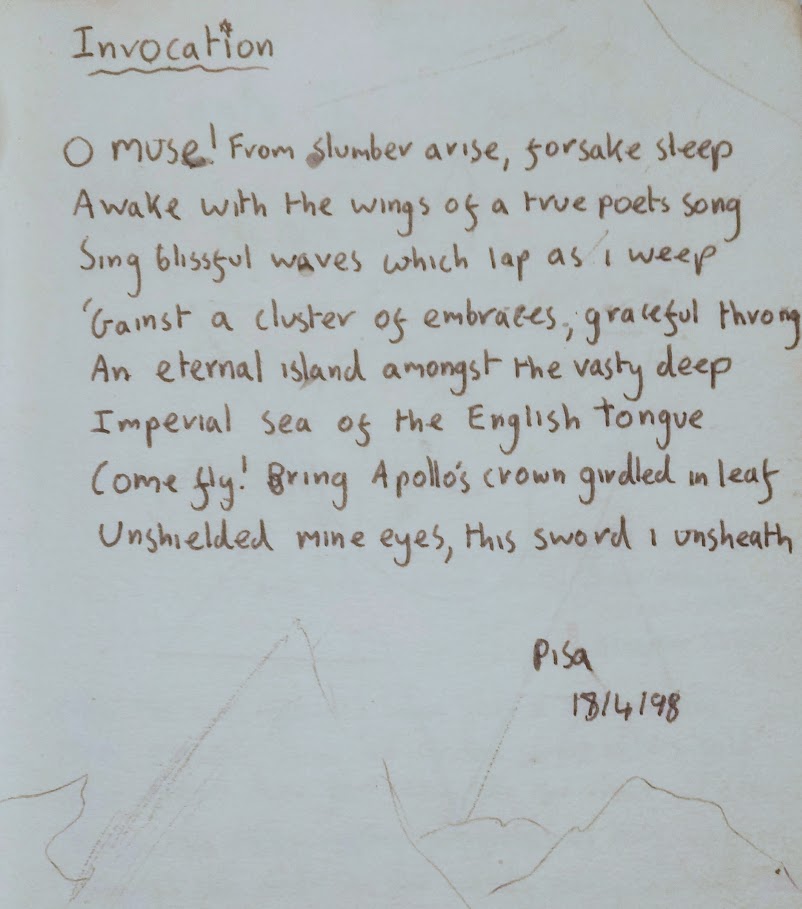 Invocation
O muse! From slumber arise, forsake sleep
Awake with the wings of a true poets song
Sing blissful waves which lap as i weep
'Gainst a cluster of embraces, graceful throng
An eternal island amongst the vasty deep
Imperial sea of the English tongue
Come fly! Bring Apollo's crown girdled in leaf
Unshielded mine eyes, this sword i unsheath
Pisa
18/4/98